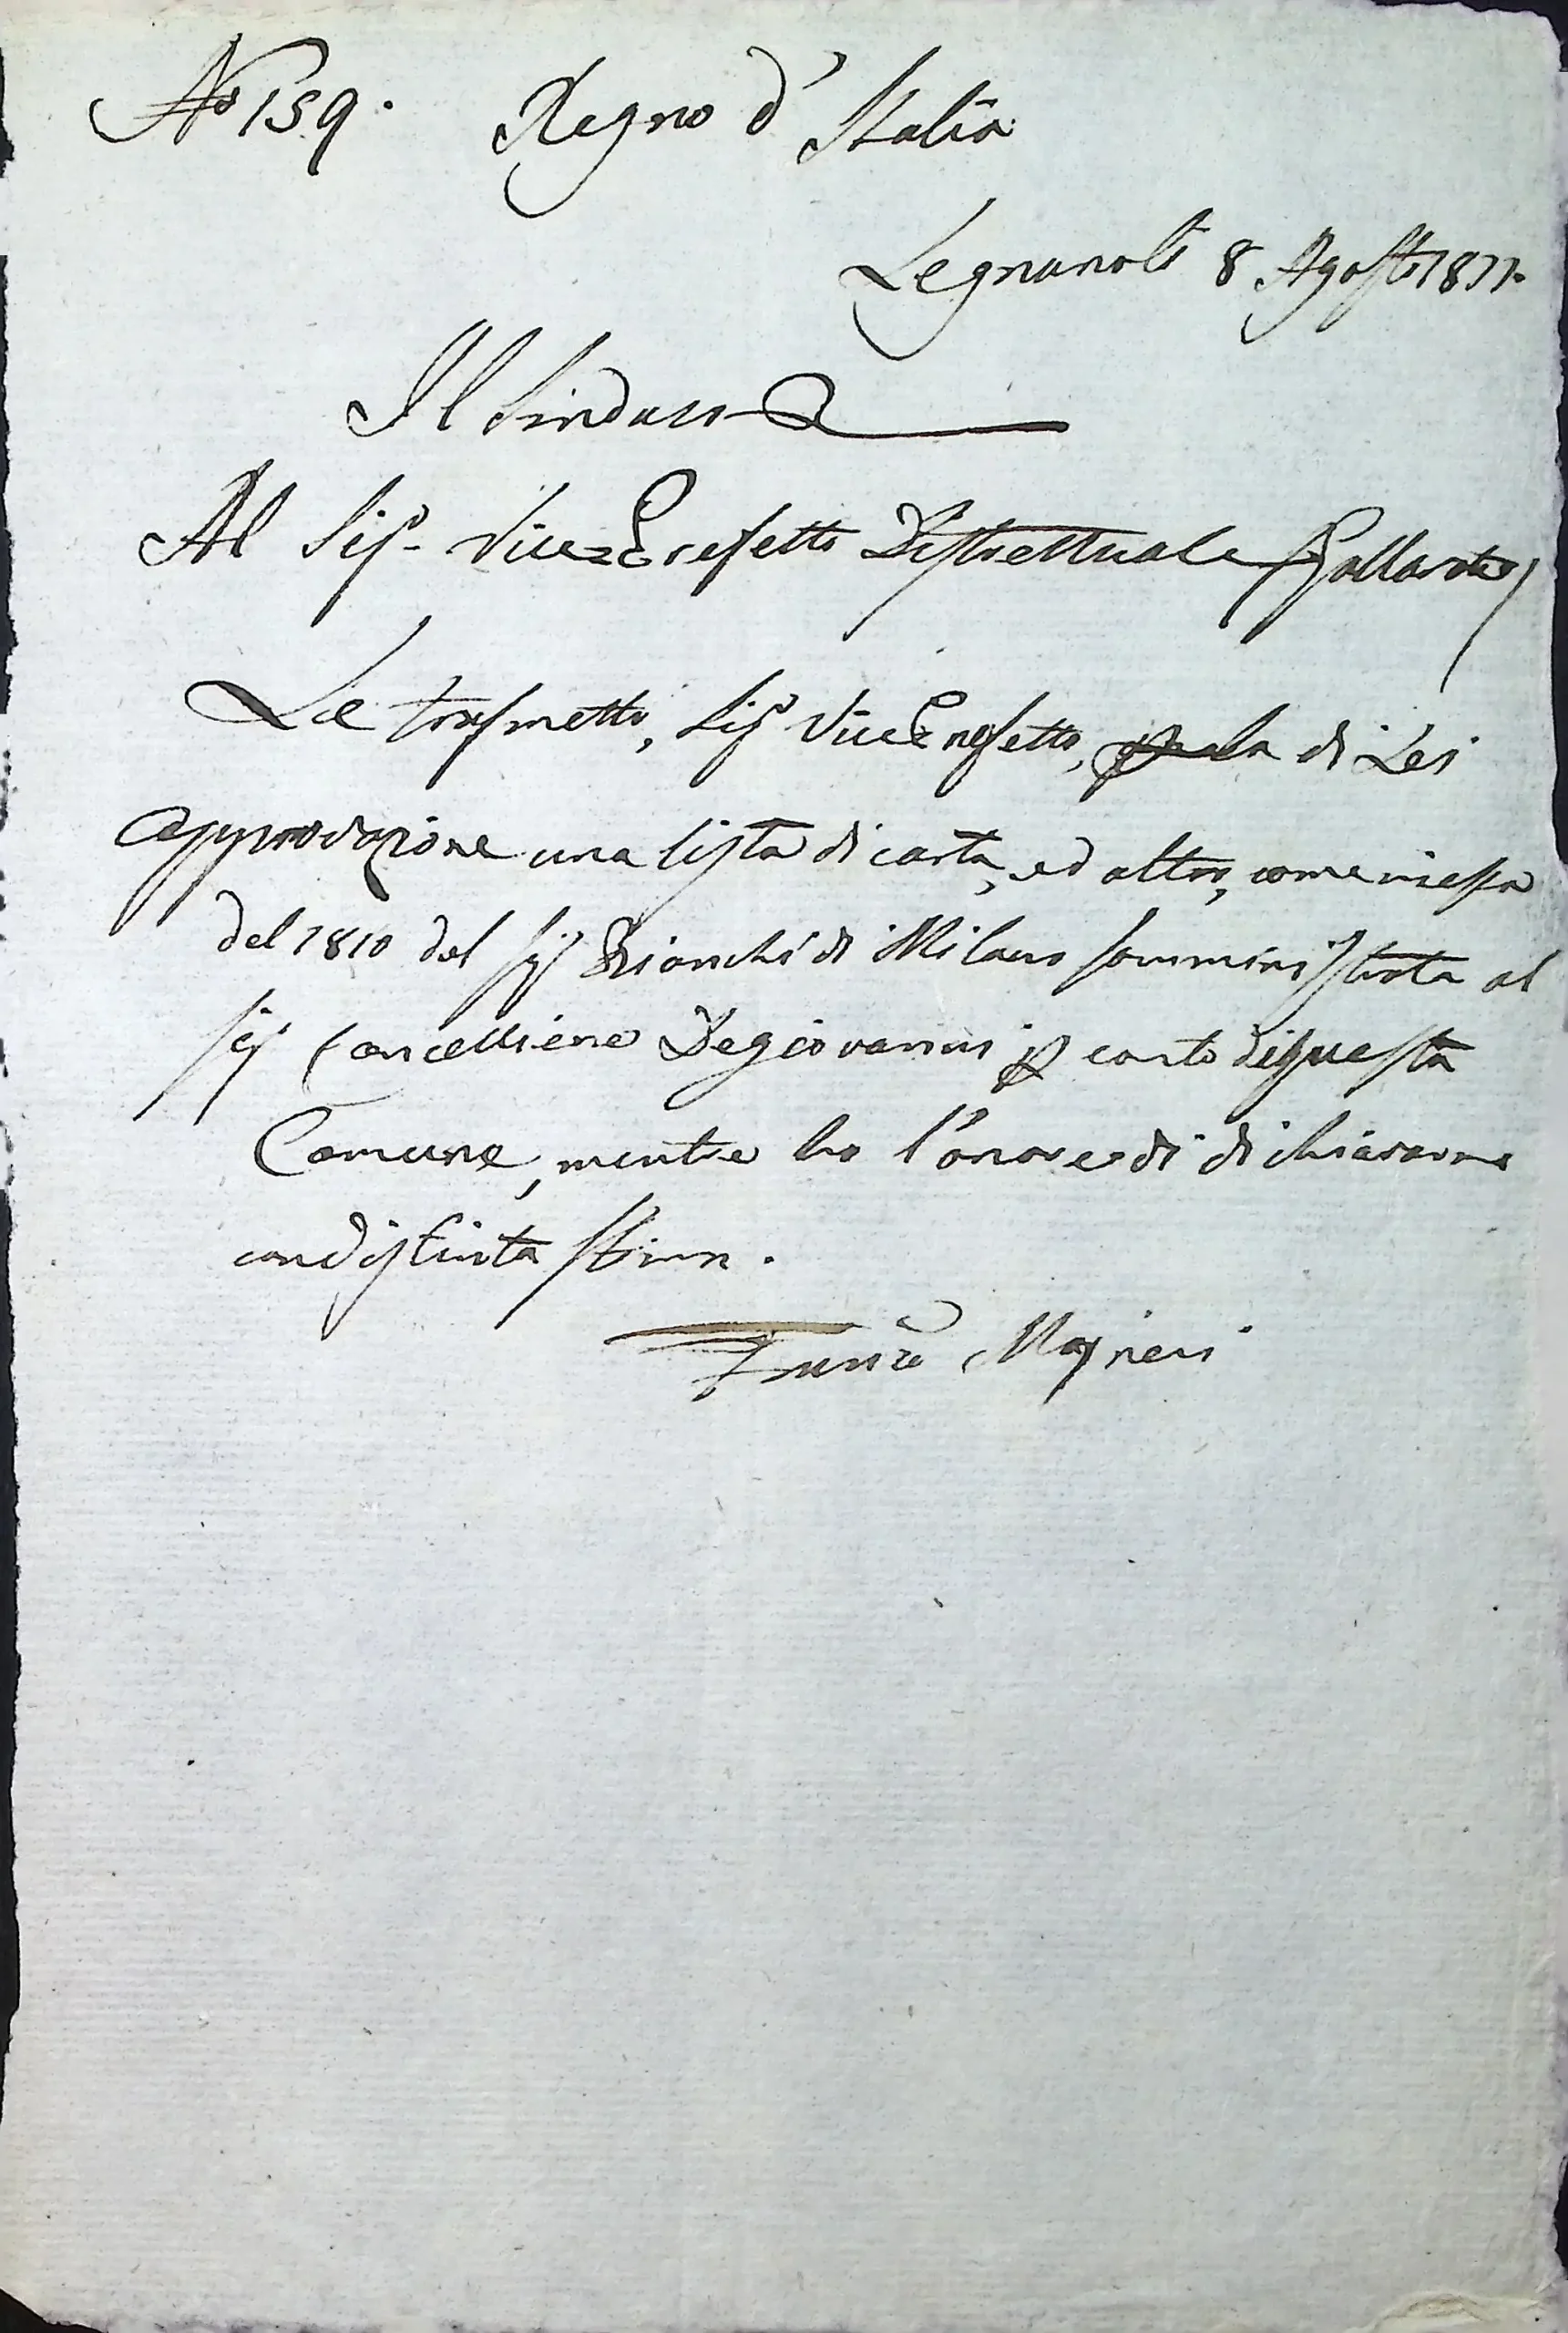 No 159. Regno d'Italia
Legnanello 8 Agosto 1811.
Il Sindaco
Al Sigr. Vice Prefetto Distrettuale Gallarate
Le trasmetto, Sigr Vice Prefetto, per la di Lei
approvazione una lista di carta, ed altro, come in essa
del 1810 del Sigr Bianchi di Milano somministrata al
Sigr Cancelliere Degiovanni per conto di questa
Comune, mentre ho l'onore di dichiararme
con distinta stima.